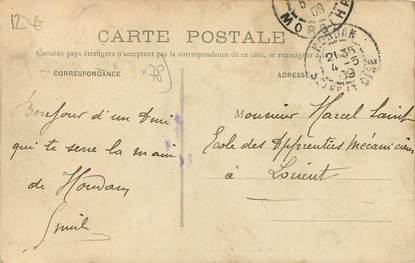 12 €
CARTE POSTALE
Certains pays étrangers n'acceptant pas la correspondance de ce côté, se renseigner
CORRESPONDANCE
(78)
ADRESSE
MORBIHAN
HOUDAN
21 35
4 - 5
09
SEINE ET OISE
Bonjour d'un Ami
qui te serre la main
de Houdan
Emile
Monsieur Marcel Saint
Ecole des Apprenties Mécaniciens
à Lorient